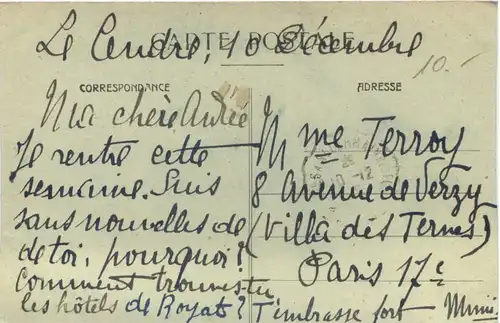 Le Cendre, 10 Décembre
CARTE POSTALE
10.-
CORRESPONDANCE
ADRESSE
Ma chère Andrée
Je rentre cette
semaine. Suis
sans nouvelles de
de toi, pourquoi?
Comment trouves-tu
les hôtels de Royat?
T'embrasse fort
Mimi
Mme Terroy
8 Avenue de Verzy
(Villa des Ternes)
Paris 17e